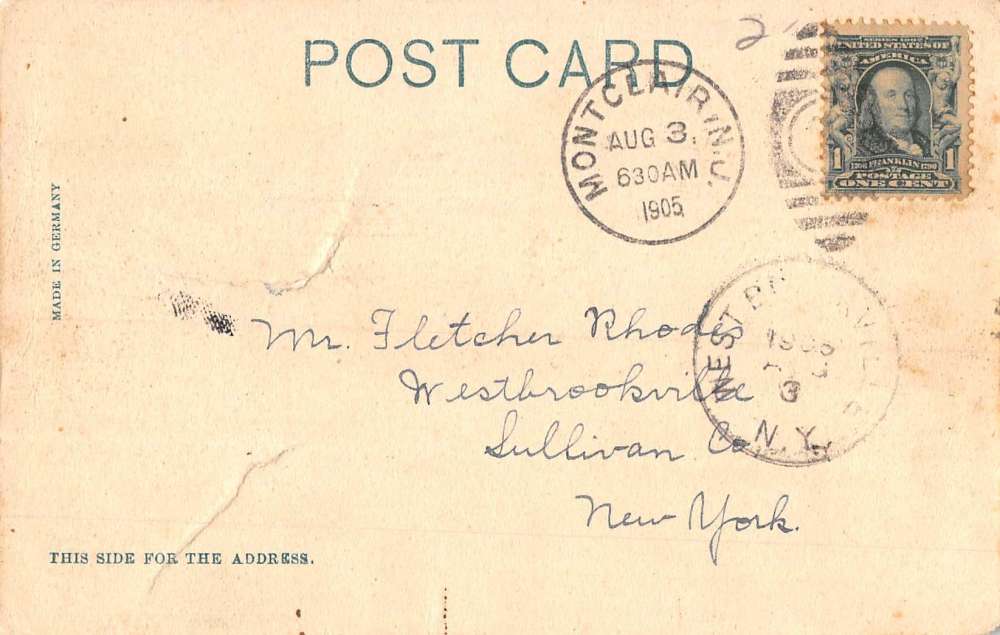 POST CARD
MONTCLAIR, N.J.
AUG 3.
630AM
1905
SERIES 1902
UNITED STATES OF
AMERICA
1 1
1706 FRANKLIN 1790
POSTAGE
ONE CENT
2
MADE IN GERMANY
Mr. Fletcher Rhodes
Westbrookville
Sullivan Co
New York.
WEST
3
N.Y.
THIS SIDE FOR THE ADDRESS.